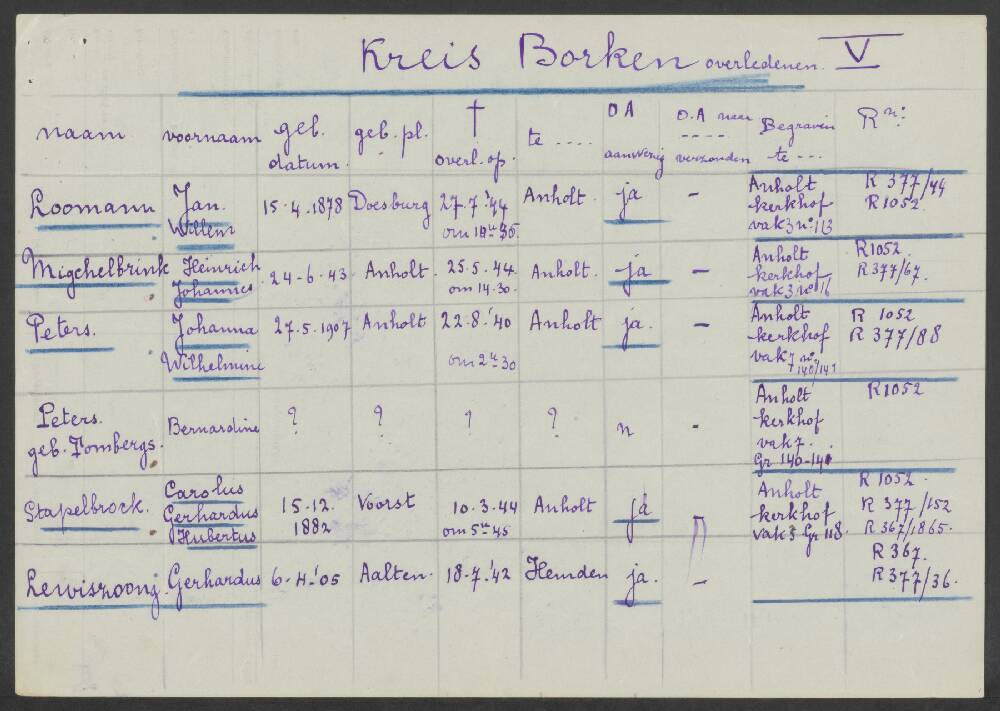 Kreis Borken overledenen. V
naam voornaam geb. datum. geb. pl. † overl. op. te .... O A aanwezig O.A neer ---- verzonden Begraven te --- R nº:
Loomann Jan. Willem 15.4.1878 Doesburg 27.7.'44 Anholt. ja - Anholt R 377/44
kerkhof R1052.
vak 3 nº 113
Migchelbrink Heinrich Johannes 24-6-43 Anholt. 25.5.44 om 14.30. Anholt. ja - Anholt R1052.
kerkhof R377/67.
vak 3 nº 16
Peters. Johanna Wilhelmine 27.5.1907 Anholt 22.8.'40 om 2 u 30 Anholt ja. - Anholt R 1052
kerkhof R 377/88
vak 7 nº.
140/141
Peters. geb. Fombergs. Bernardine ? ? ? ? n - Anholt R1052
kerkhof
vak 7.
Gr 140-141
Stapelbrock. Carolus Gerhardus Hubertus 15-12. 1882 Voorst 10.3.44 om 5 u 45 Anholt ja Anholt R 1052.
kerkhof R 377/152
vak 3 Gr 118. R 367/1865.
Gerhardus Aalten. 18-7.'42 Hemden ja. - R 367.
R 377/36.